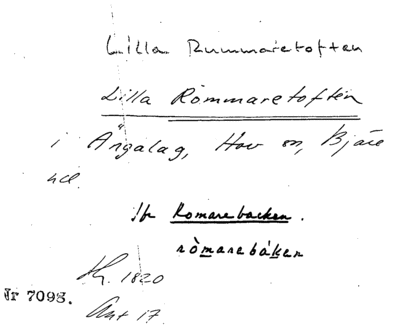 Lilla Rummaretoften
Lilla Rommaretoften
i Ängalag, Hov sn, Bjäre
hd.
Jfr Romarebacken.
ròmarebáken
1820
Nr 7098.
Akt 17